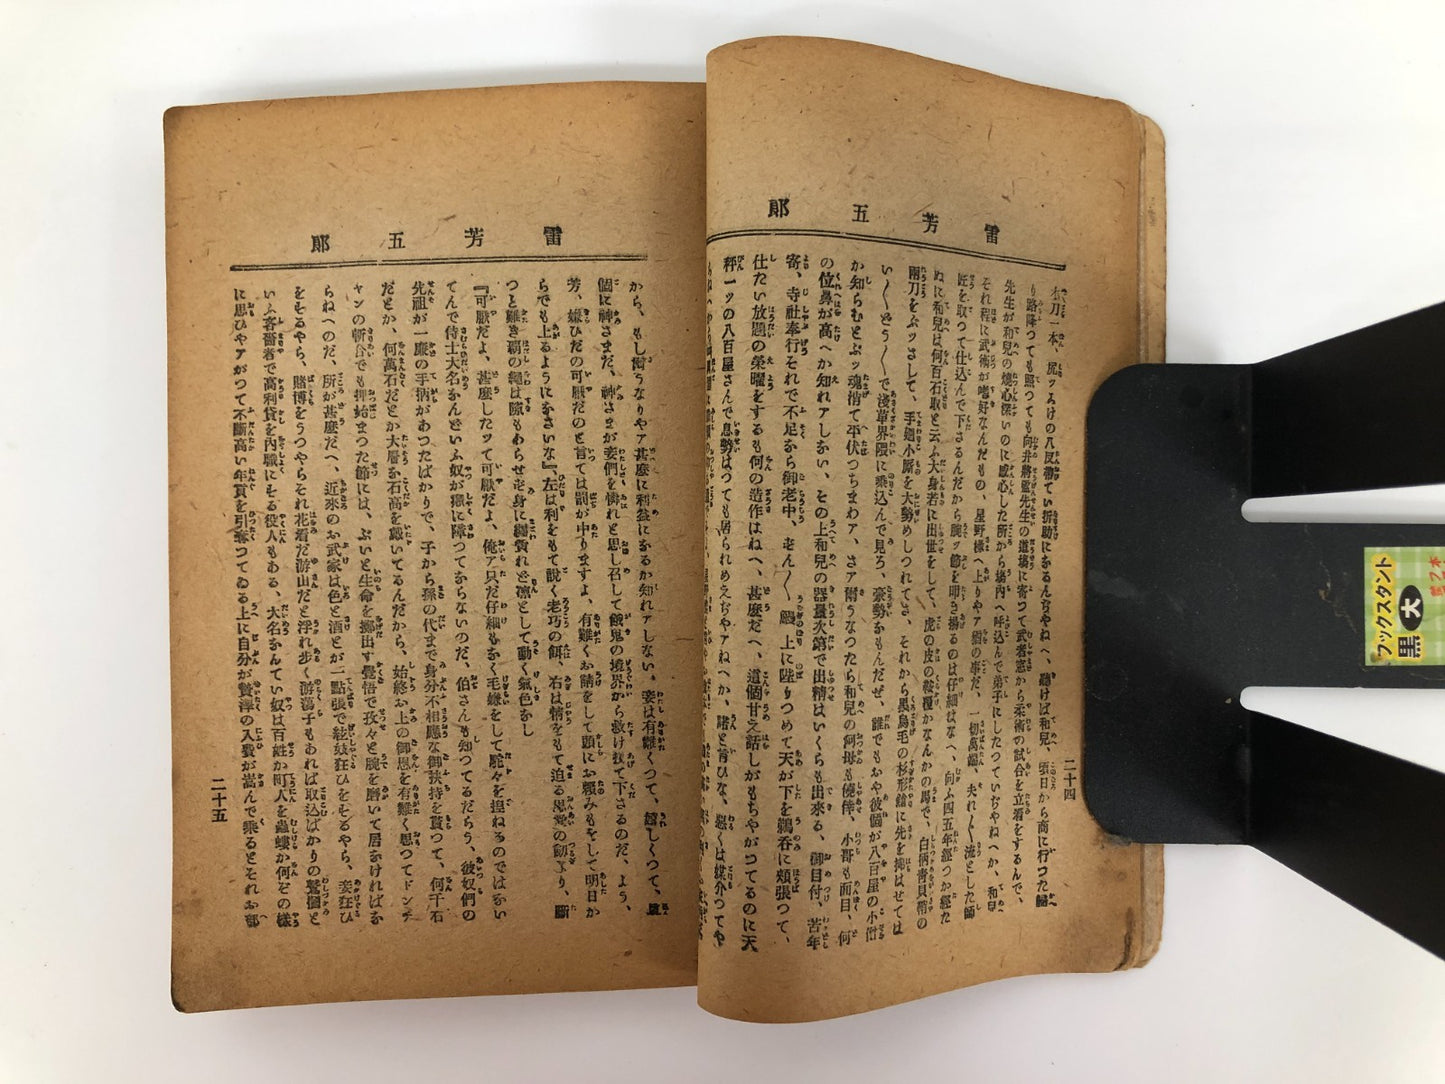 雷芳五郎
太刀一本、尻ッみけの八反帶てい折助になるんぢやねへ、聽けば和兒、頃日から商に行つた歸
り路降つても照つても向井將監先生の道塲に寄つて武者窓から柔術の試合を立着をするんで、
先生が和兒の熱心深いのに感心した所から塲内へ呼込んで弟子にしたつていぢやねへか、和兒
それ程に武術が嗜好なんだもの、星野樣へ上りやア猶の事だ、一切萬端、夫れ〳〵流とした師
匠を取つて仕込んで下さるんだから腕ッ節を叩き揚るのは仔細はなへ、向ふ四五年經つか經た
ぬに和兒は何百石取と云ふ大身若に出世をして、虎の皮の鞍覆かなんかの馬で、白柄青貝鞘の
兩刀をぶッさして、手廻小厮を大勢めしつれてさ、それから黒鳥毛の杉形鎗に先を拂はせては
い〳〵どう〳〵で淺草界隈に乘込んで見ろ、豪勢なもんだぜ、誰でもおや彼儕が八百屋の小僧
か知らむとぶッ魂消て平伏つちまわア、さア爾うなつたら和兒の阿母も僥倖、小哥も面目、何
の位鼻が高へか知れアしない、その上和兒の器量次第で出精はいくらも出來る、御目付、若年
寄、寺社奉行それで不足から御老中、老ん〳〵鰻上に陞りつめて天が下を鵜呑に頬張つて、
仕たい放題の榮曜をするも何の造作はねへ、甚麽だへ、這個甘え話しがもちやがつてるのに天
秤一ッの八百屋さんで息勢はつても居られめえぢやアねへか、諾と言ひな、惡くは媒介つてや
二十四
雷芳五郎
から、もし爾うなりやア甚麽に利益になるか知れアしない。妾は有難くつて、嬉しくつて、眞
個に神さまだ、神さまが妾們を憐れと思し召して餓鬼の境界から救け拔て下さるのだ、よう、
芳、嫌ひだの可厭だのと言ては罰が中りますよ、有難くお請をして頭にお頼みもをして明日か
らでも上るようになさいな』、左は利をもて說く老巧の餌、右は情をもて迫る恩愛の覊より、斷
つと難き覇の繩は隙もあらせを身に纒賞れど凛として動く氣色なし
『可厭だよ、甚麽したッて可厭だよ、俺ア只だ仔細もなく毛嫌をして駝々を揑ねるのではない
てんで侍士大名なんといふ奴が癪に障つてならないのだ、伯さんも知つてるだらう、彼奴們の
先祖が一廉の手柄があつたばかりで、子から孫の代まで身分不相應な御扶持を貰つて、何千石
だとか、何萬石だとか大層な石高を戴いてるんだから、始終お上の御恩を有難く思つてドンチ
ャンの斬合でも押始まつた節には、ぷいと生命を擲出す覺悟で孜々と腕を磨いて居なければな
らねへのだ、所が甚麽だへ、近來のお武家は色と酒とが二點張で絃妓狂ひをそるやら、妾狂ひ
をそるやら、賭博をうつやらそれ花看だ游山だと浮れ步く游蕩子もあれば取込ばかりの鷲慣と
いふ客嗇者で高利貸を內職にそる役人もある、大名なんてい奴は百姓か町人を蟲螻か何ぞの樣
に思ひやアがつて不斷高い年貢を引奪つてゐる上に自分が贅澤の入費が嵩んで乘るとそれお部
二十五
ブックスタント
黒 大